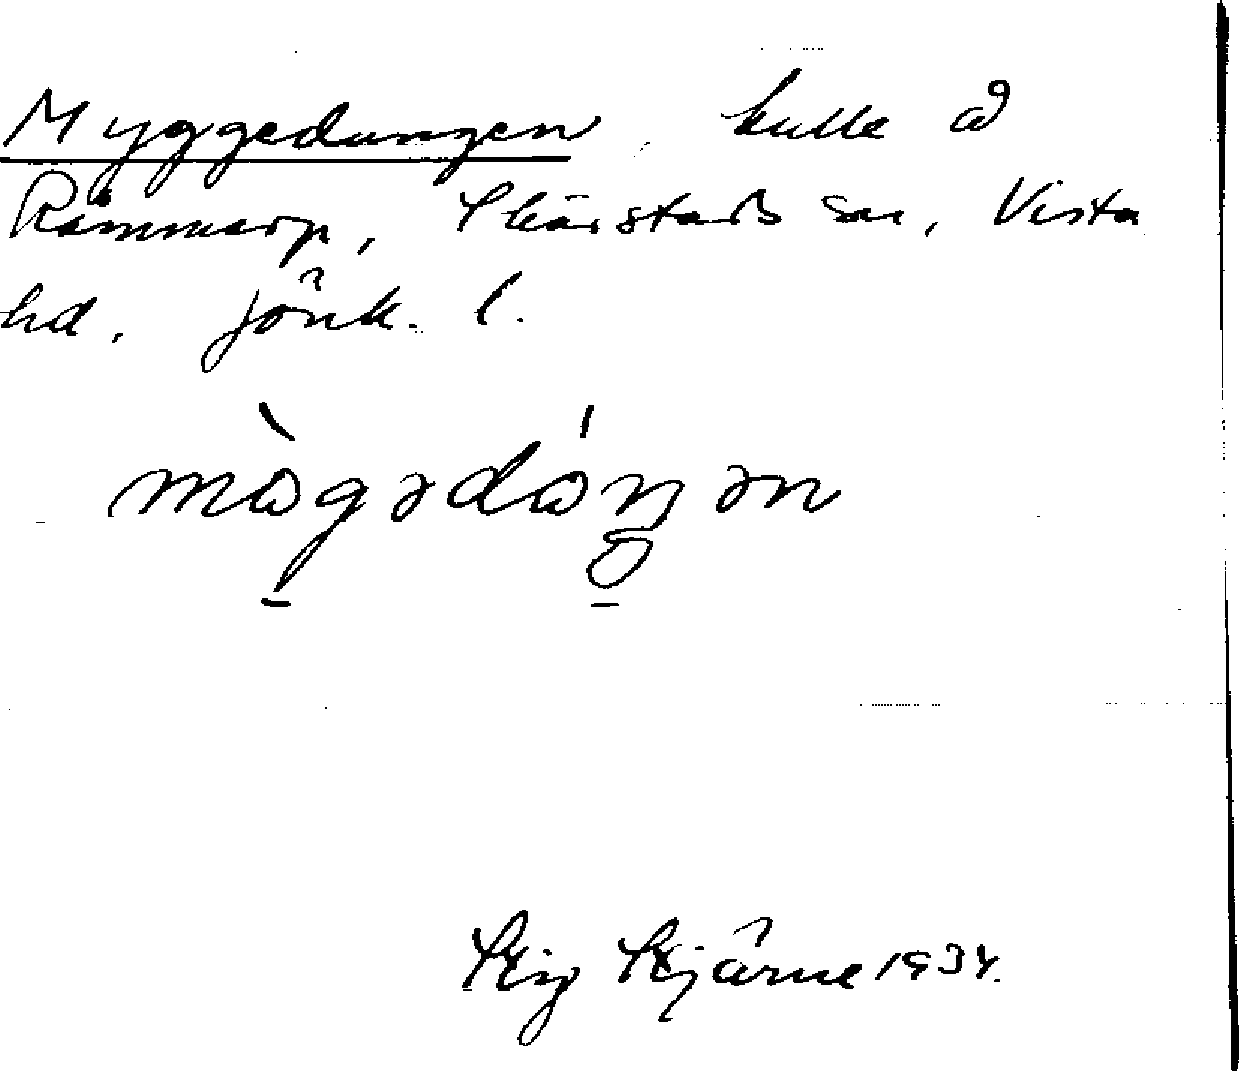 Myggedungen, kulle å
Rommarp, Skärstads sn, Vista
hd. Jönk. l.
mògədóŋən
Stig Stjärne 1934.